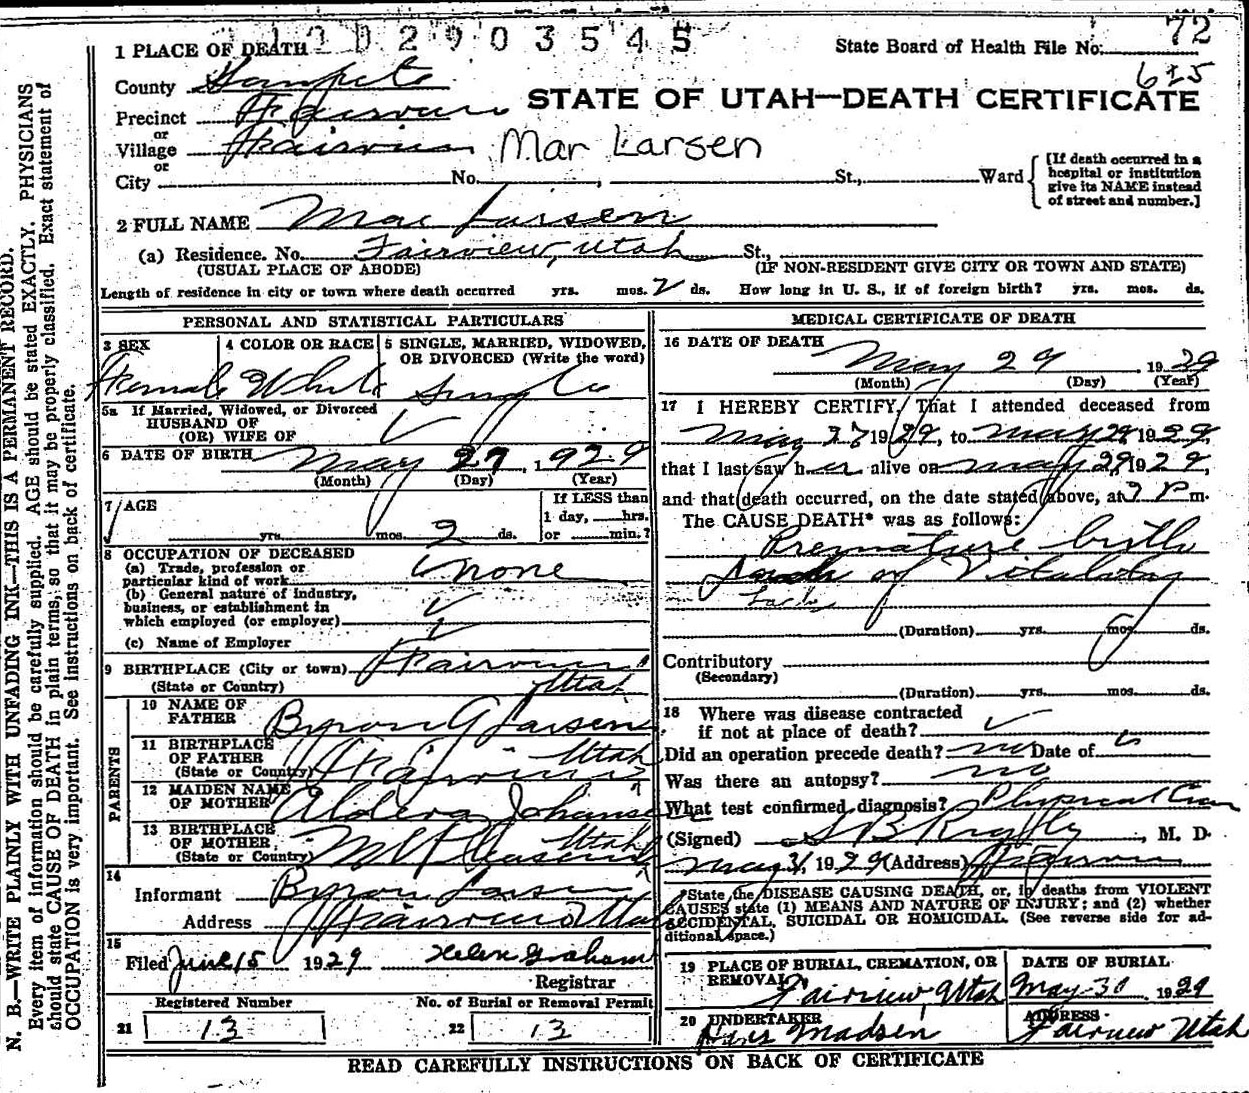 1 PLACE OF DEATH
2903545
State Board of Health File No. 72
615
County Sanpete
STATE OF UTAH—DEATH CERTIFICATE
Precinct Fairview
or
Village Fairview
Mar Larsen
or
City No. , St., Ward
[If death occurred in a
hospital or institution
give its NAME instead
of street and number.]
2 FULL NAME Mar Larsen
(a) Residence. No. Fairview, Utah St.,
(USUAL PLACE OF ABODE) (IF NON-RESIDENT GIVE CITY OR TOWN AND STATE)
Length of residence in city or town where death occurred yrs. mos. 2 ds. How long in U. S., if of foreign birth? yrs. mos. ds.
PERSONAL AND STATISTICAL PARTICULARS
3 SEX 4 COLOR OR RACE 5 SINGLE, MARRIED, WIDOWED,
OR DIVORCED (Write the word)
Female White Single
5a If Married, Widowed, or Divorced
HUSBAND OF
(OR) WIFE OF
6 DATE OF BIRTH May 27, 1929
(Month) (Day) (Year)
7 AGE
If LESS than
1 day, hrs.
yrs. mos. 2 ds. or min.?
8 OCCUPATION OF DECEASED
(a) Trade, profession or
particular kind of work none
(b) General nature of industry,
business, or establishment in
which employed (or employer)
(c) Name of Employer
9 BIRTHPLACE (City or town) Fairview
(State or Country) Utah
PARENTS
10 NAME OF
FATHER Byron G Larsen
11 BIRTHPLACE
OF FATHER Fairview Utah
(State or Country)
12 MAIDEN NAME
OF MOTHER Aldera Johansen
13 BIRTHPLACE
OF MOTHER Mt Pleasant Utah
(State or Country)
14
Informant Byron Larsen
Address Fairview Utah
15
Filed June 15 1929 Helen Graham
Registrar
Registered Number No. of Burial or Removal Permit
21 13 22 13
MEDICAL CERTIFICATE OF DEATH
16 DATE OF DEATH
May 29, 1929
(Month) (Day) (Year)
17 I HEREBY CERTIFY, That I attended deceased from
May 27 1929, to May 29 1929,
that I last saw her alive on May 29, 1929,
and that death occurred, on the date stated above, at 9 P m.
The CAUSE DEATH* was as follows:
Premature birth
Lack of Vitality
Lack
(Duration) yrs. mos. ds.
Contributory
(Secondary)
(Duration) yrs. mos. ds.
18 Where was disease contracted
if not at place of death?
Did an operation precede death? no Date of
Was there an autopsy? no
What test confirmed diagnosis? Physical Exam
(Signed) , M. D.
May 31, 1929 (Address) Fairview
*State the DISEASE CAUSING DEATH, or, in deaths from VIOLENT
CAUSES state (1) MEANS AND NATURE OF INJURY; and (2) whether
ACCIDENTAL, SUICIDAL OR HOMICIDAL. (See reverse side for ad-
ditional space.)
19 PLACE OF BURIAL, CREMATION, OR
REMOVAL
Fairview, Utah
DATE OF BURIAL
May 30 1929
20 UNDERTAKER
Madsen
ADDRESS
Fairview Utah
READ CAREFULLY INSTRUCTIONS ON BACK OF CERTIFICATE
N. B.—WRITE PLAINLY WITH UNFADING INK—THIS IS A PERMANENT RECORD.
Every item of information should be carefully supplied. AGE should be stated EXACTLY. PHYSICIANS
should state CAUSE OF DEATH in plain terms, so that it may be properly classified. Exact statement of
OCCUPATION is very important. See instructions on back of certificate.